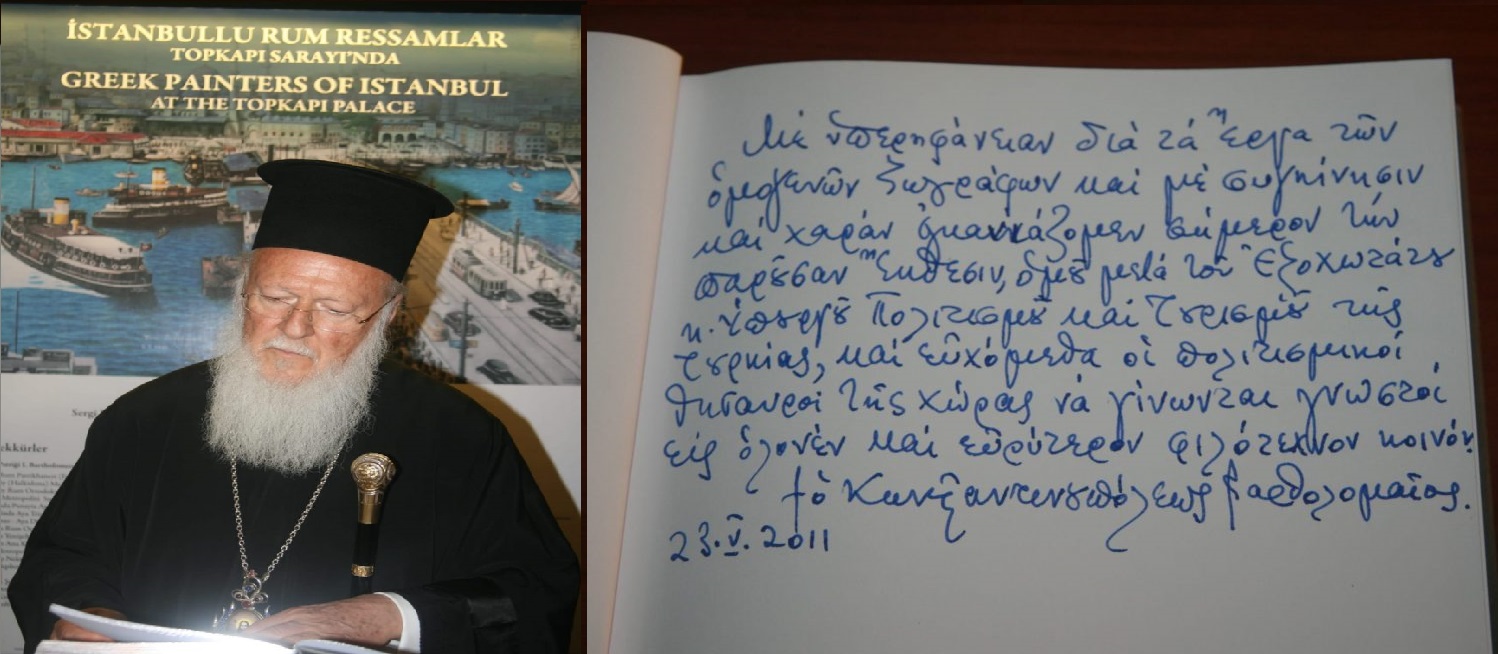 İSTANBULLU RUM RESSAMLAR
TOPKAPI SARAYI'NDA
GREEK PAINTERS OF ISTANBUL
AT THE TOPKAPI PALACE
Sergi
Μέ ὑπερηφάνειαν διά τά ἔργα τῶν
ὁμογενῶν ζωγράφων καί μέ συγκίνησιν
καί χαράν ἐγκαινιάζομεν σήμερον τήν
παροῦσαν ἔκθεσιν, ὁμοῦ μετά τοῦ Ἐξοχωτάτου
κ. Ὑπουργοῦ Πολιτισμοῦ καί Τουρισμοῦ τῆς
Τουρκίας, καί εὐχόμεθα οἱ πολιτισμικοί
θησαυροί τῆς χώρας νά γίνωνται γνωστοί
εἰς ὁλονέν καί εὐρύτερον φιλότεχνον κοινόν.
† ὁ Κωνσταντινουπόλεως Βαρθολομαῖος.
23.V.2011